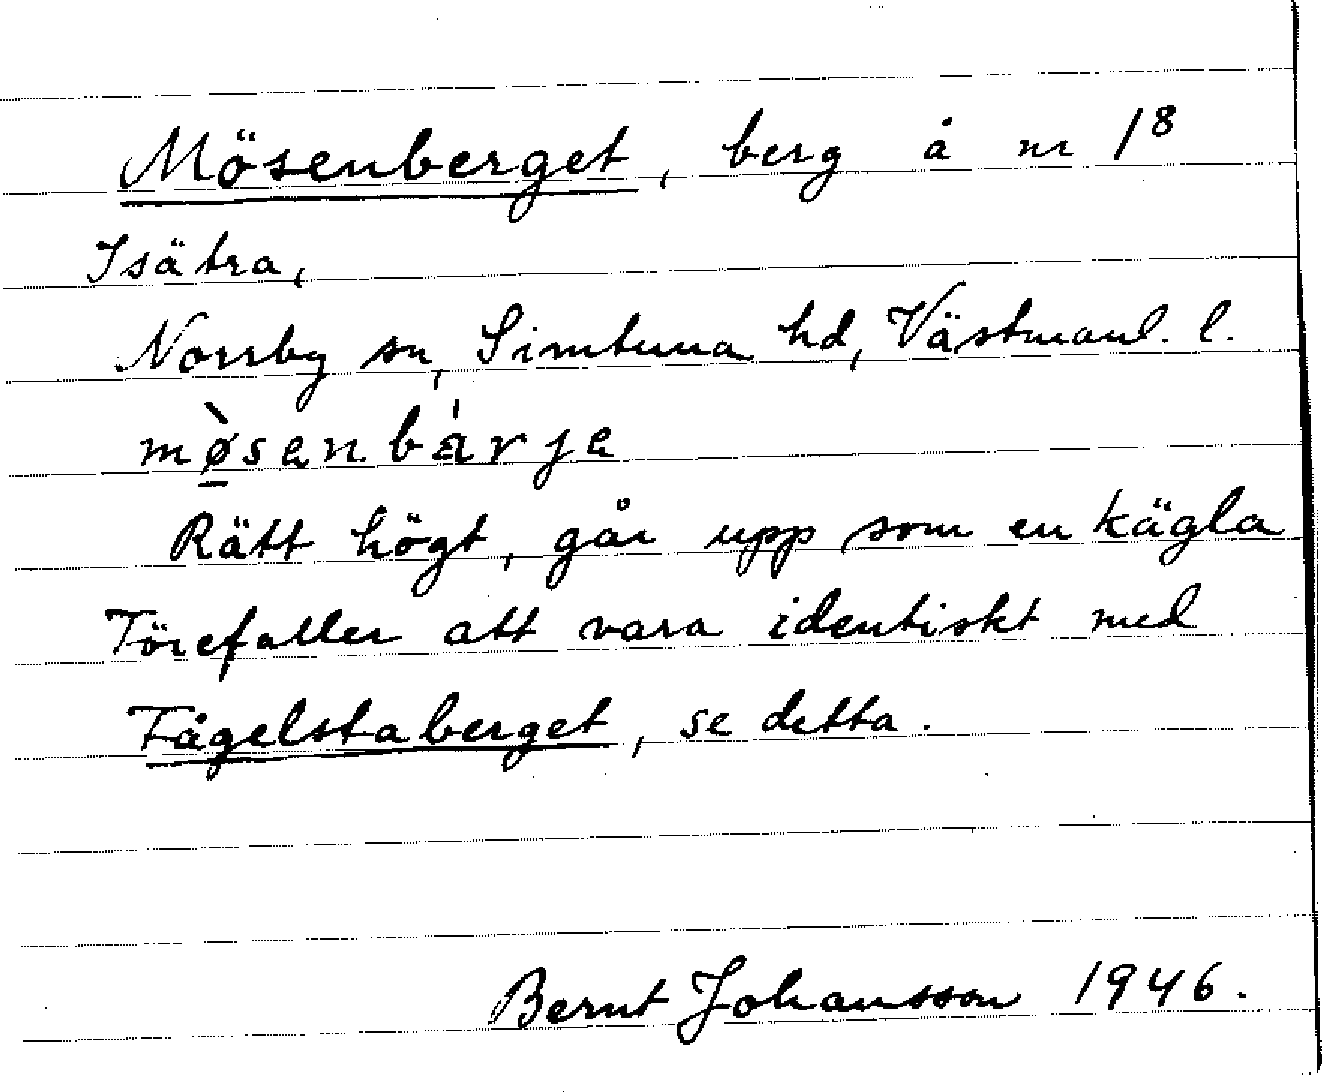 Mösenberget, berg å nr 1⁸
Isätra,
Norrby sn, Simtuna hd, Västmanl. l.
mø̀senbárje
Rätt högt, går upp som en kägla
Förefaller att vara identiskt med
Fågelstaberget, se detta.
Bernt Johansson 1946.